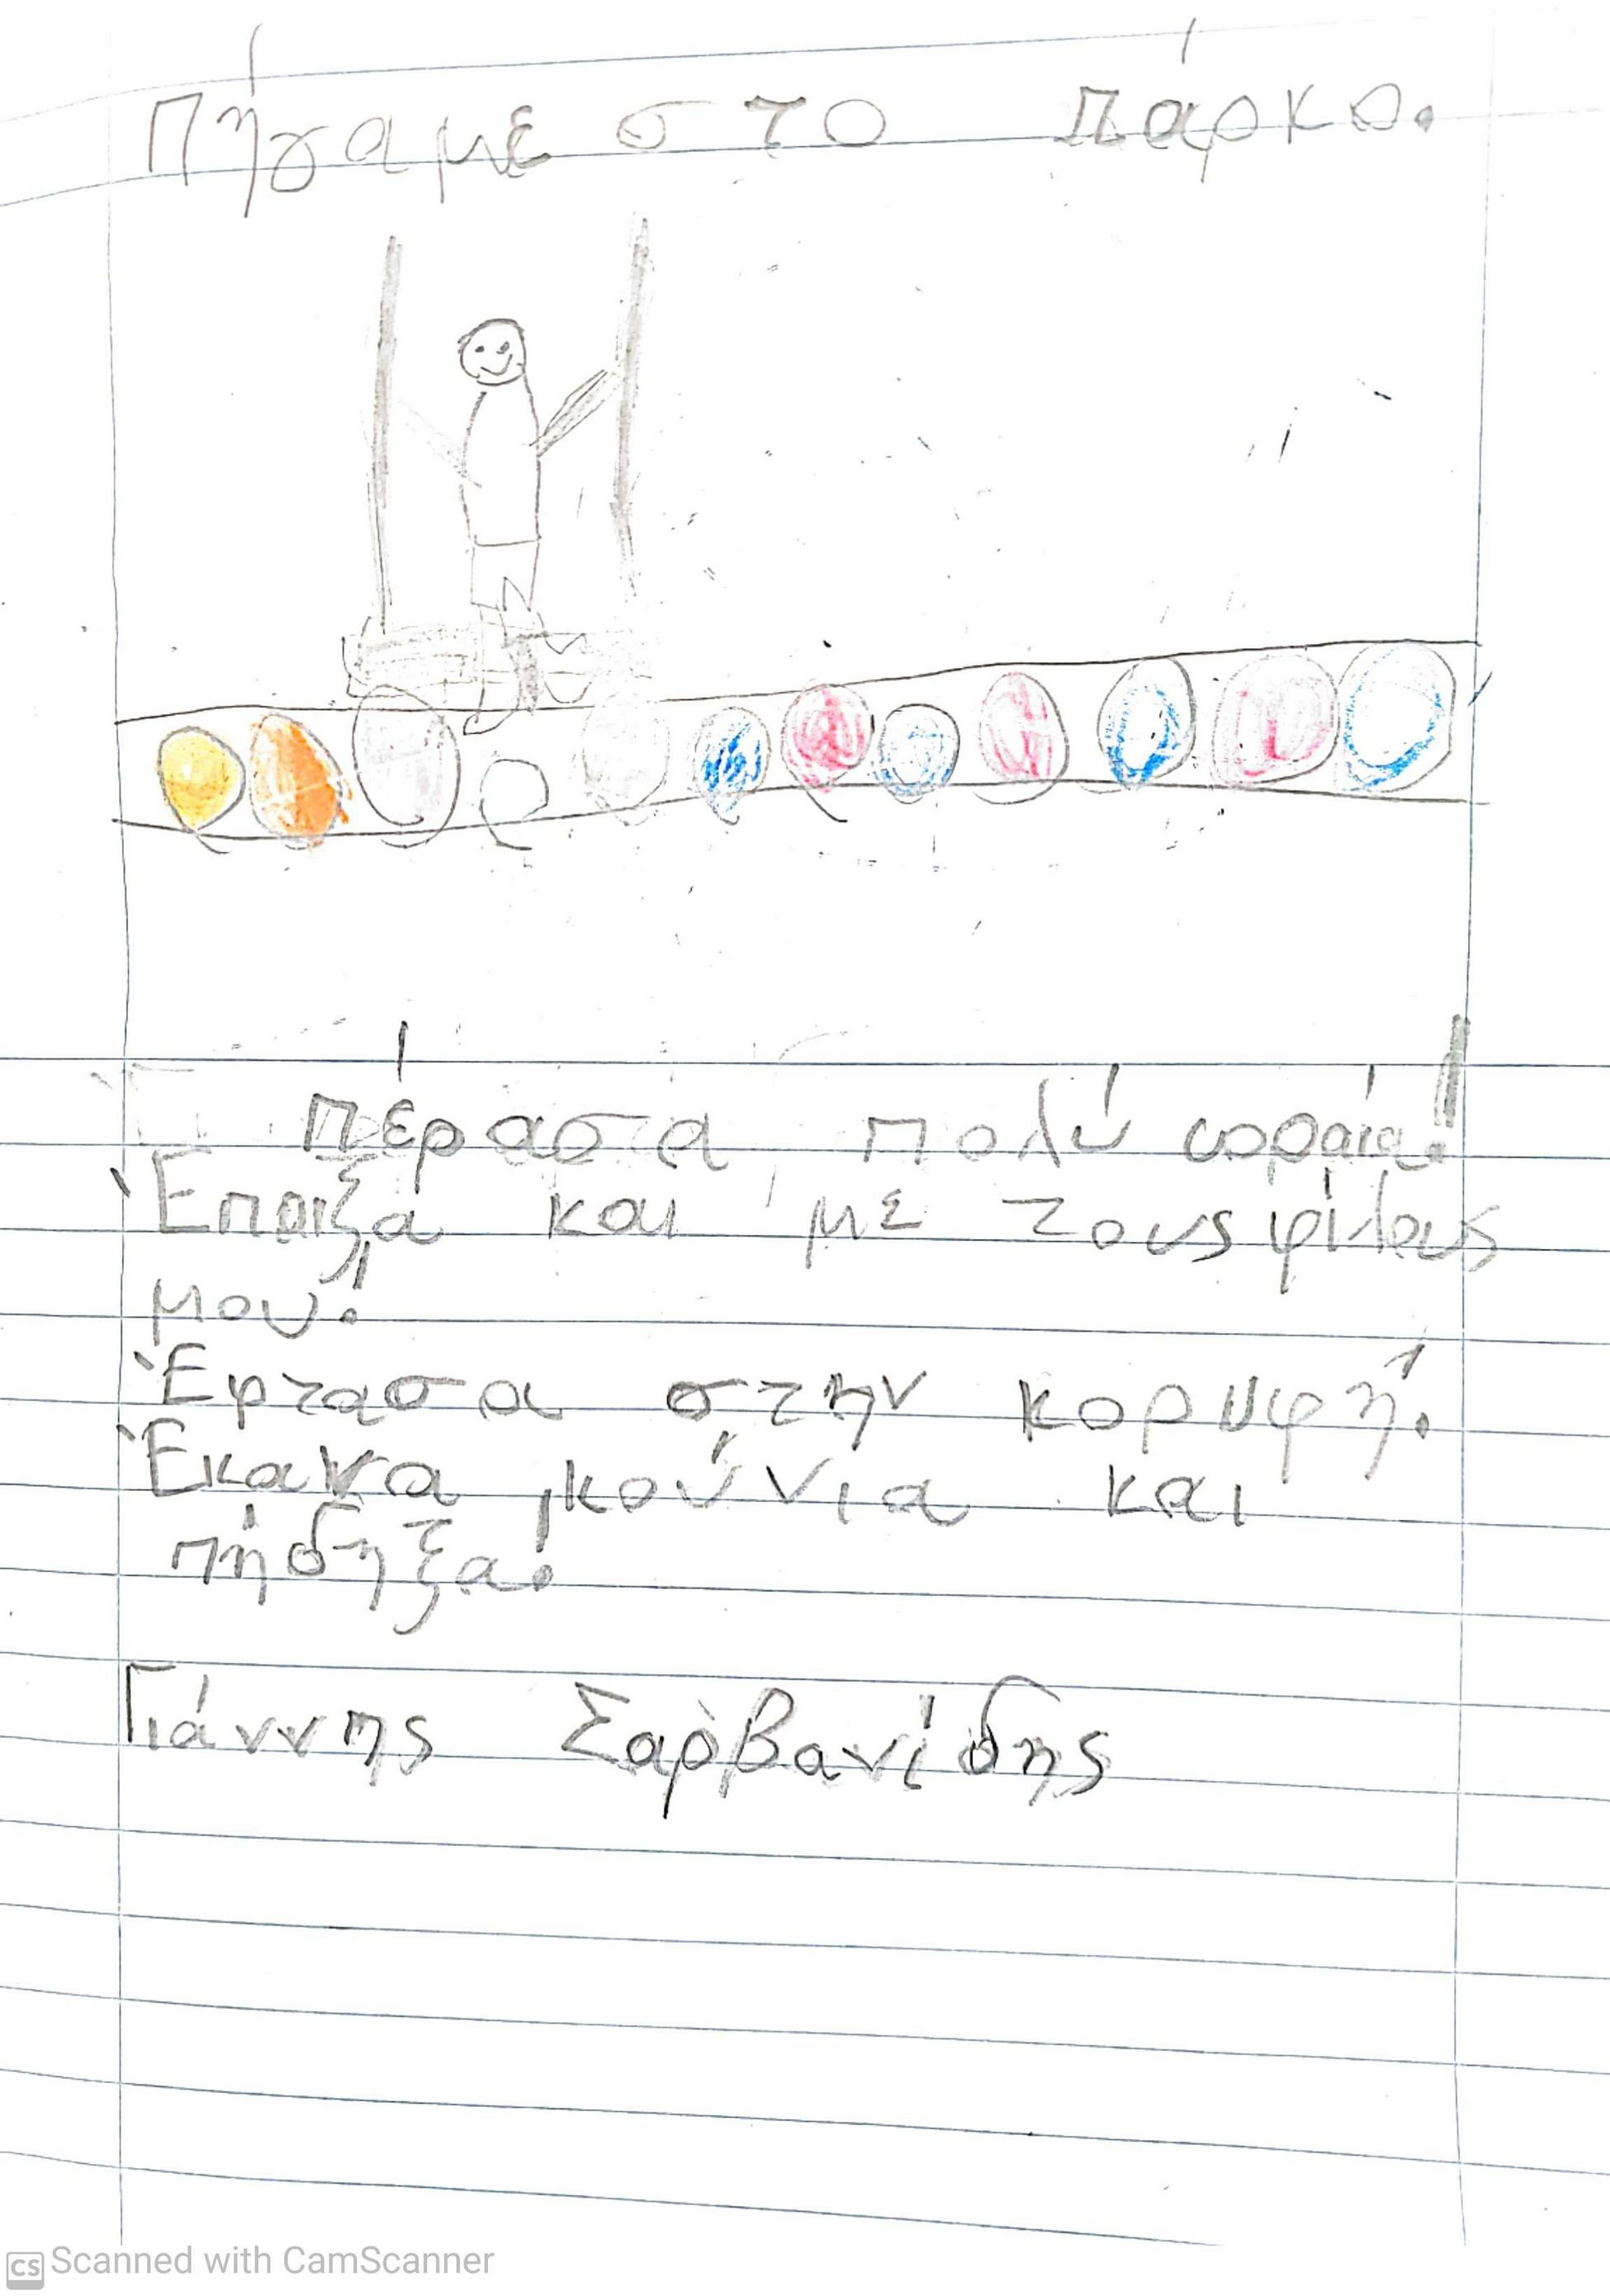 Πήγαμε στο πάρκο.
Πέρασα πολύ ωραία!
Έπαιξα και με τους φίλους
μου!
Έφτασα στην κορυφή.
Έκανα κούνια και
πήδηξα!
Γιάννης Σαρβανίδης
CS Scanned with CamScanner